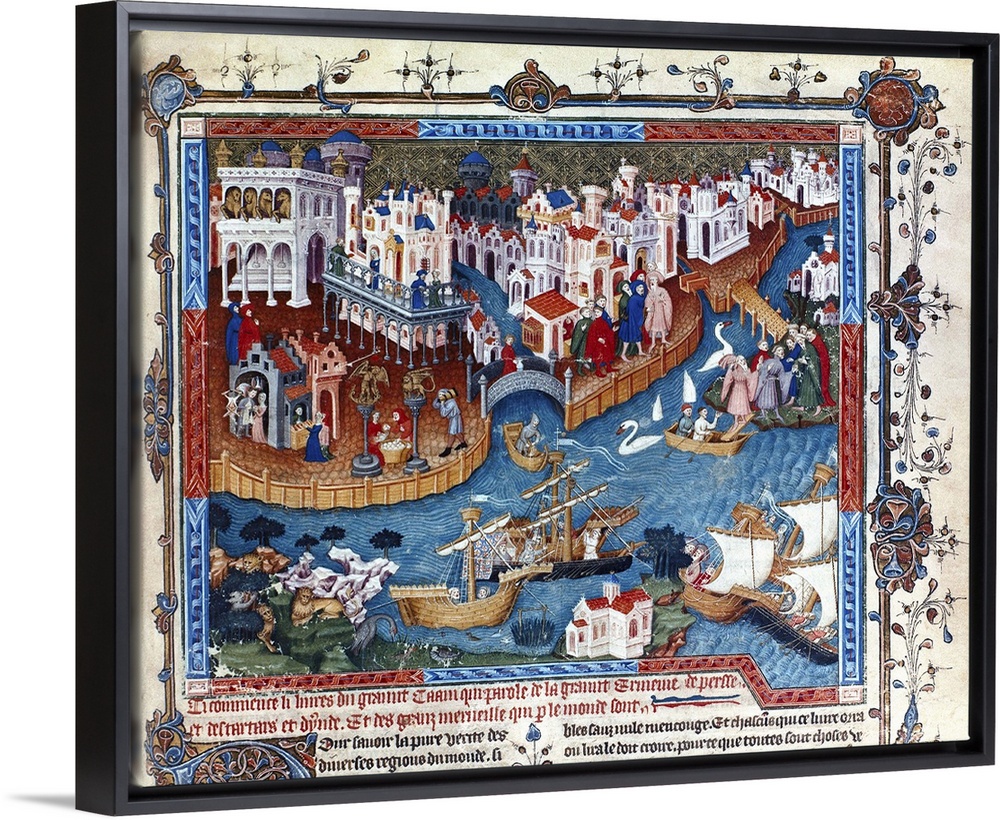 Ci commence li liures du graunt Caam qui parole de la graunt Ermenie de persse.
et des tartars et dynde. Et des granz merueille qui p le monde sont.
Our sauoir la pure verite des
diuerses regions du monde. si
bles sanz nule mencouge. Et chascuns qui ce liure orra
ou lira le doit croire, pource que toutes sont choses ve